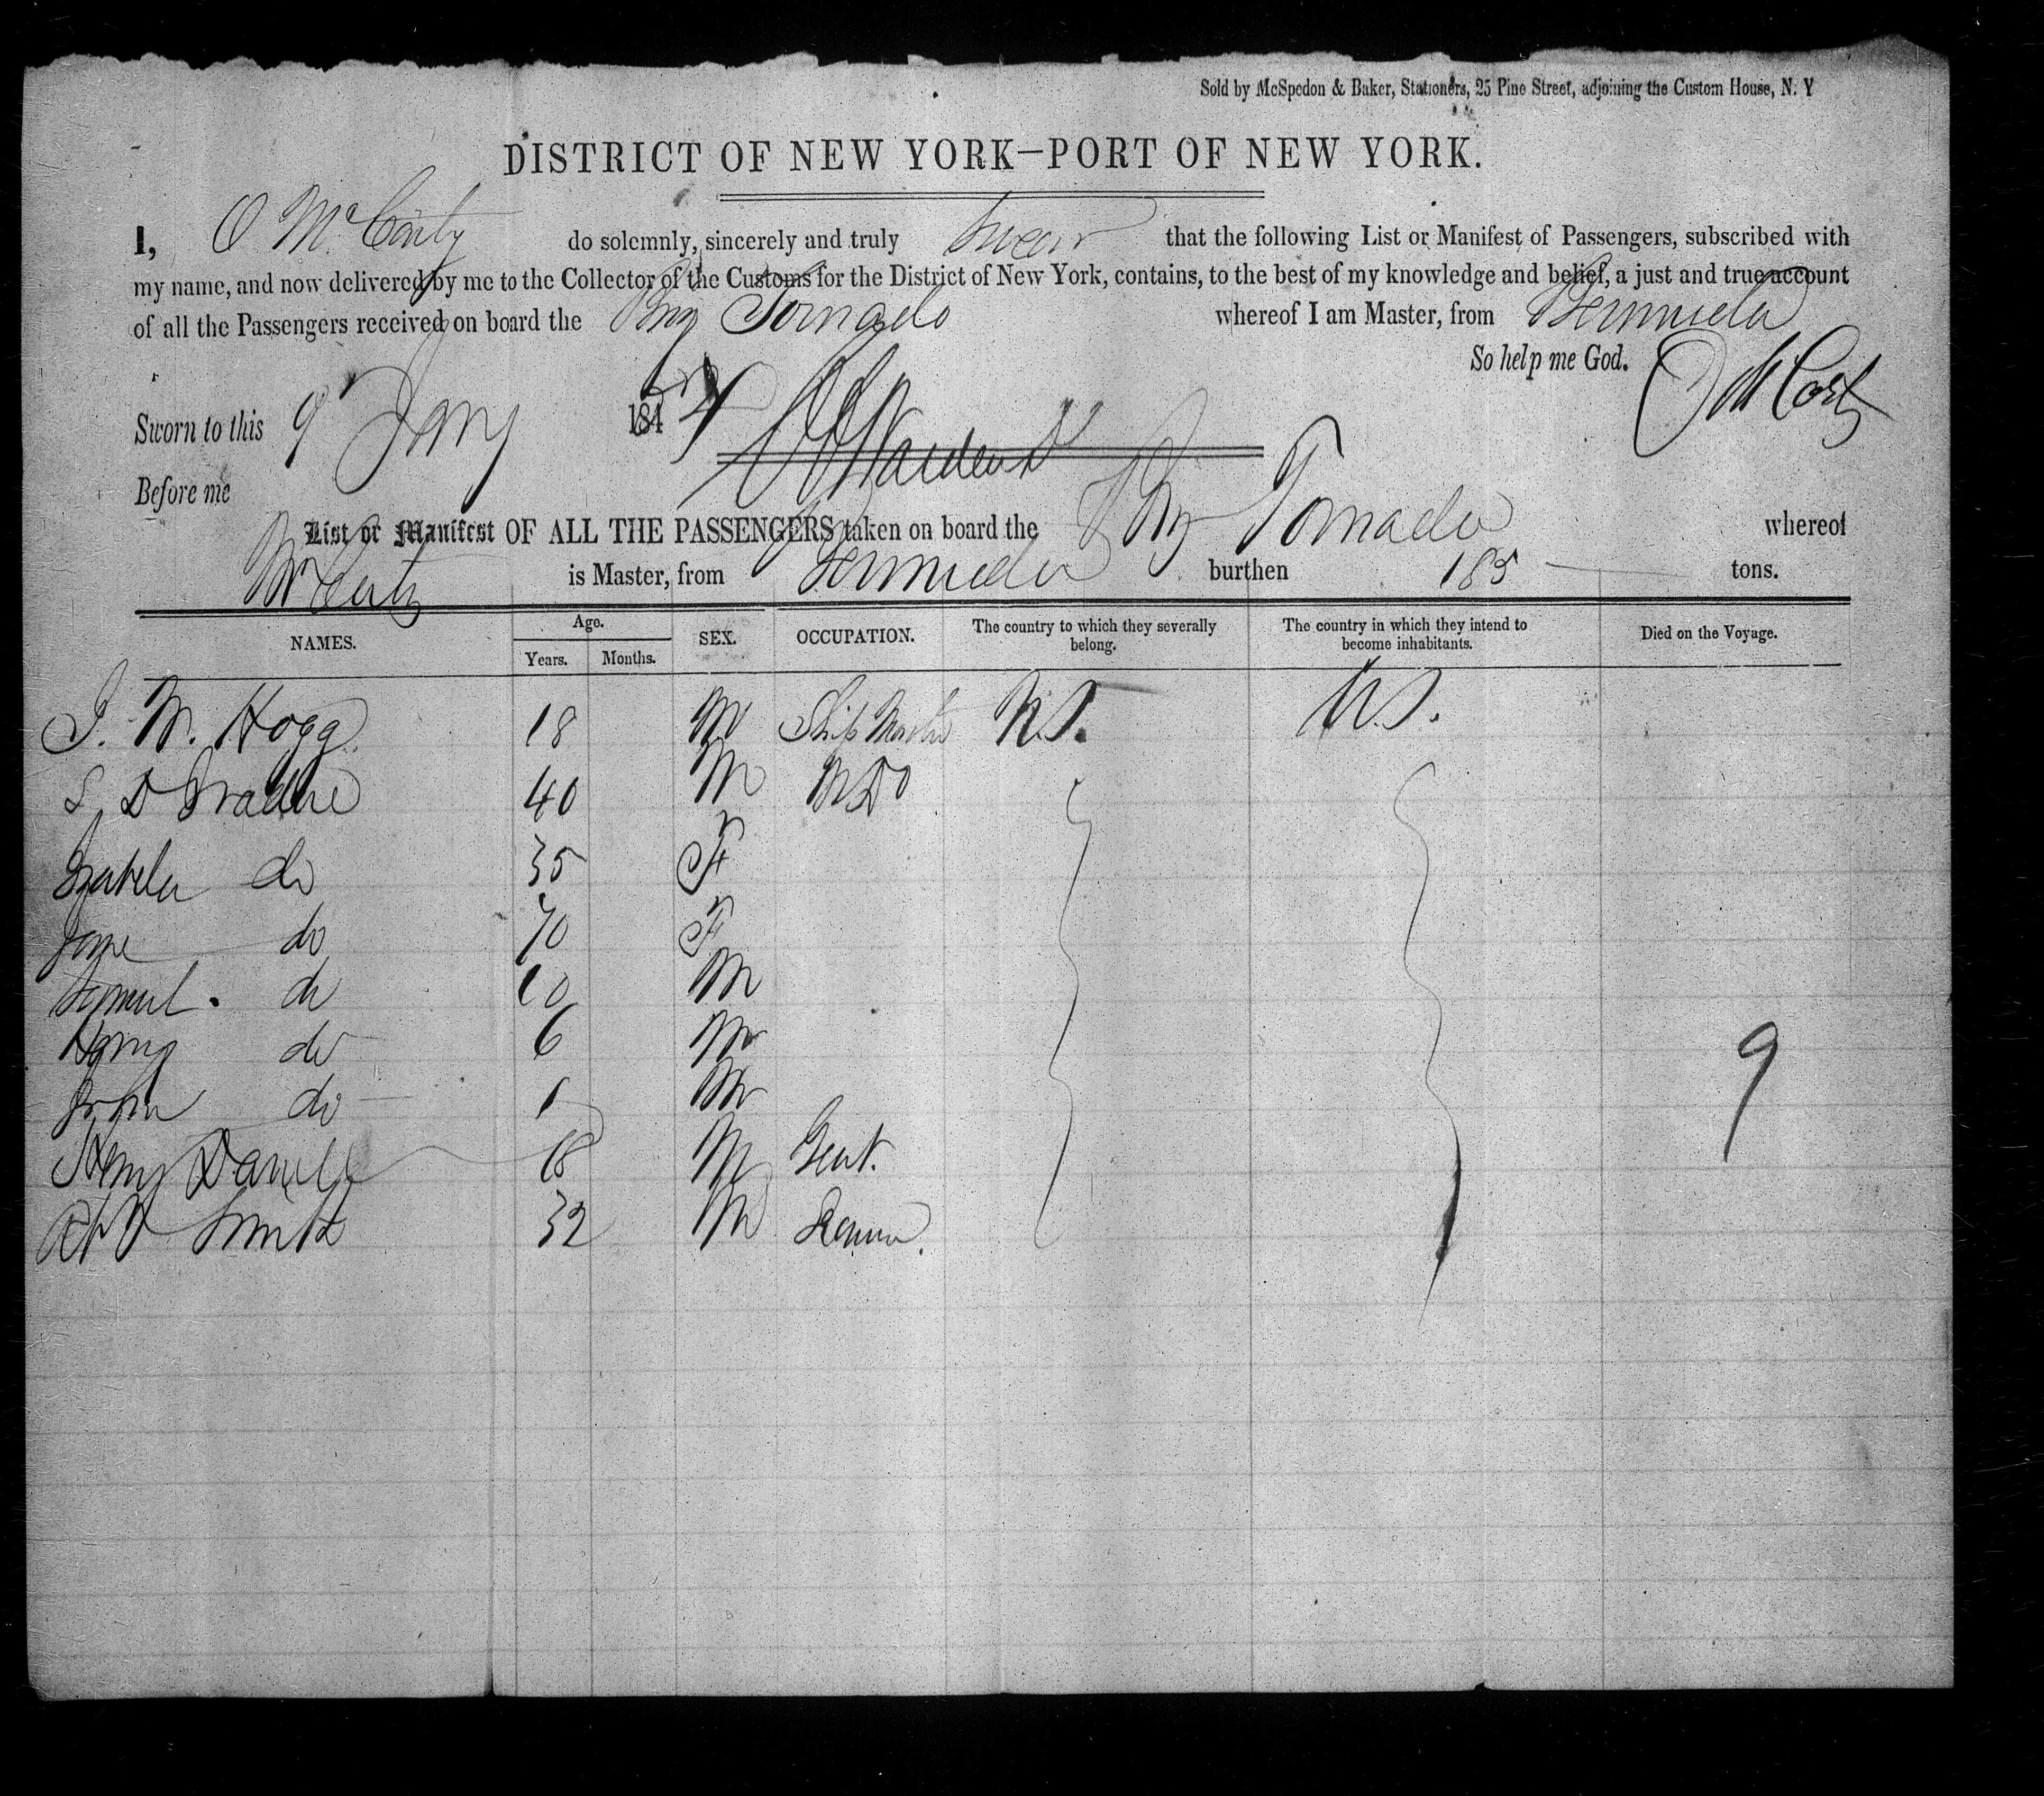 Sold by McSpedon & Baker, Stationers, 25 Pine Street, adjoining the Custom House, N. Y
DISTRICT OF NEW YORK—PORT OF NEW YORK.
I, O McCarty do solemnly, sincerely and truly swear that the following List or Manifest of Passengers, subscribed with
my name, and now delivered by me to the Collector of the Customs for the District of New York, contains, to the best of my knowledge and belief, a just and true account
of all the Passengers received on board the Brig Tornado whereof I am Master, from Bermuda
So help me God. O McCarty
Sworn to this 9 Jany 1854
Before me
List or Manifest OF ALL THE PASSENGERS taken on board the Brig Tornado whereof
McCarty is Master, from Bermuda burthen 185 tons.
NAMES. Age. Years. Months. SEX. OCCUPATION. The country to which they severally belong. The country in which they intend to become inhabitants. Died on the Voyage.
J. W. Hogg 18 M Ship Master U.S. U.S.
S D 40 M MD
Isabela do 35 F
Jane do 70 F
Samuel do 10 M
Harry do 6 M
John do 1 M
9
Henry Darrell 18 M Gent.
Smith 32 M